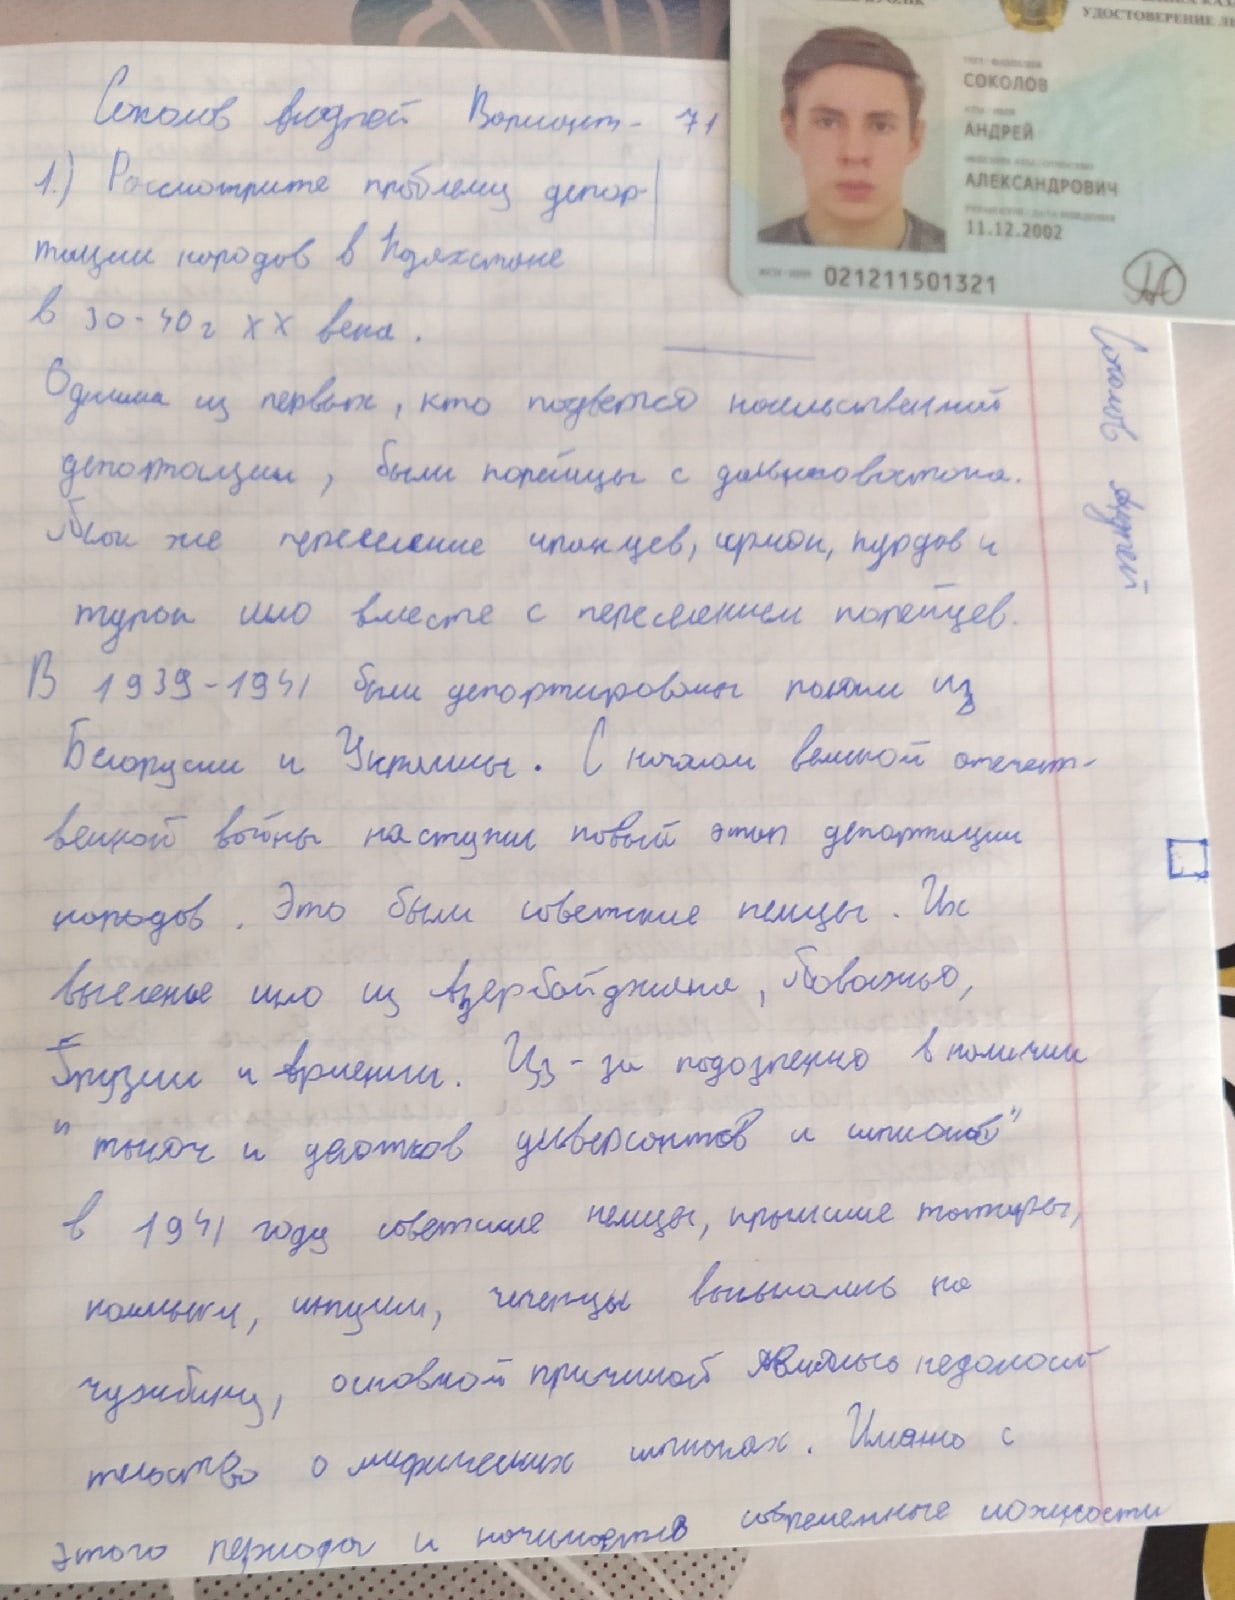 УДОСТОВЕРЕНИЕ
СОКОЛОВ
АНДРЕЙ
АЛЕКСАНДРОВИЧ
11.12.2002
021211501321
Соколов Андрей Вариант - 71
1.) Рассмотрите проблему депор-
тации народов в Казахстане
в 30-40г XX века.
Одними из первых, кто подвергся насильственной
депортации, были корейцы с дальневостока.
Так же переселение иранцев, армян, курдов и
турок шло вместе с переселением корейцев.
В 1939-1941 были депортированы поляки из
Белорусии и Украины. С началом великой отечест-
венной войны наступил новый этап депортации
народов. Это были советские немцы. Их
выселение шло из Азербайджана, Поволжью,
Грузии и Армении. Из-за подозрению в наличии
"тысяч и десятков диверсантов и шпионов"
в 1941 году советские немцы, крымские татары,
калмыки, ингуши, чеченцы высылались на
чужбину, основной причиной являлось недоказа
тельство о мифических шпионах. Именно с
этого периода и начинаются современные
Соколов Андрей